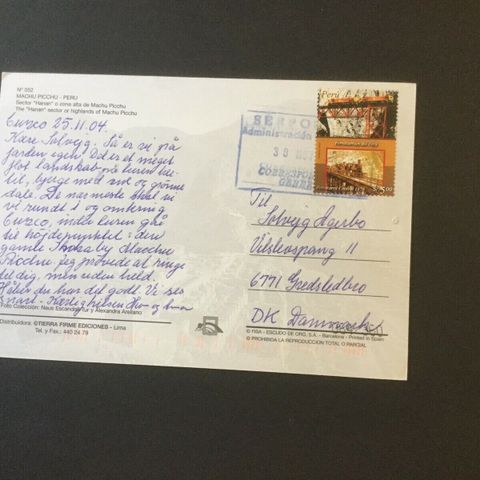 Nº 552
MACHU PICCHU - PERU
Sector "Hanan" o zona alta de Machu Picchu
The "Hanan" sector or highlands of Machu Picchu
Cuzco 25.11.04.
Kære Solvejg. Så er vi på
færden igen. Det er et meget
flot landskab på turen
bjerge med sne og grønne
dale. De næste skal vi
rundt i og omkring
Cuzco, inden turen går
til højdepunktet i den
gamle Inkaby Macchu
Picchu. Jeg prøvede at ringe
til dig, men uden held.
Håber du har det godt. Vi ses
snart - Kærlig hilsen
Foto Colección: Naus Escandas tur y Alexandra Arellano
Distribuidora: ©TIERRA FIRME EDICIONES - Lima
Tel. y Fax.: 440 24 79
SERPO
Administración
30
CORRESPO
Perú
S/. 5.00
Til
Solvejg Agerbo
Vilslevspang 11
6771 Gredstedbro
DK Danmark
© FISA - ESCUDO DE ORO, S.A. - Barcelona - Printed in Spain
© PROHIBIDA LA REPRODUCCION TOTAL O PARCIAL